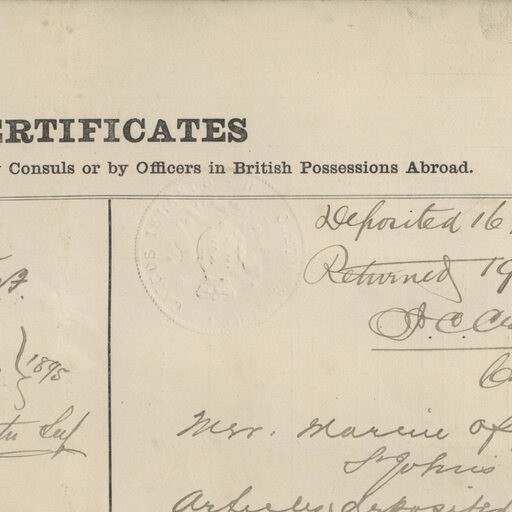 ERTIFICATES
Consuls or by Officers in British Possessions Abroad.
Deposited 16
Returned 19
1895
Mer. Marine of
St Johns
Articles deposited